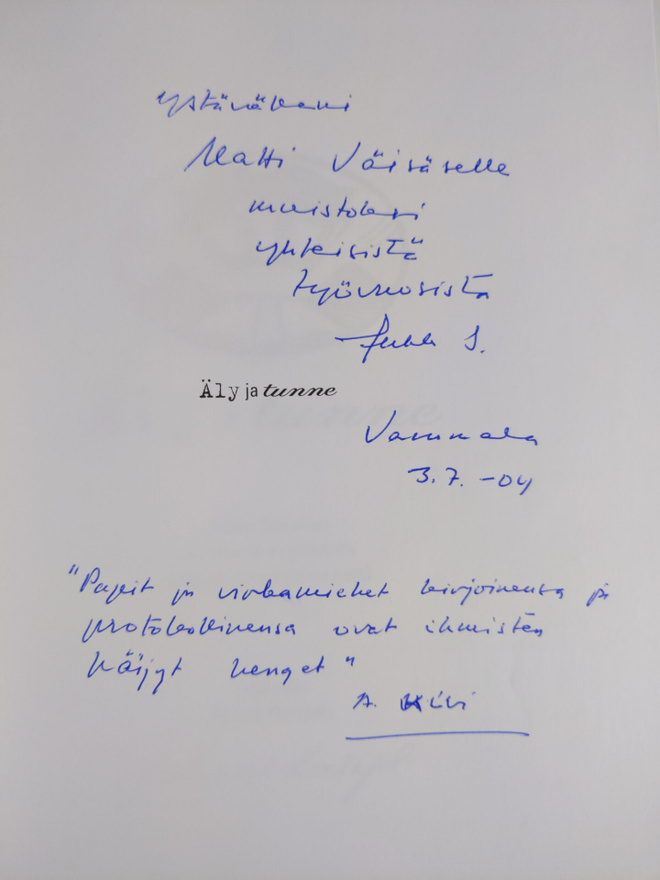 Ystäväkeni
Matti Väisäselle
muistoksi
yhteisistä
työvuosista
Jukka S.
Äly ja tunne
Vammala
3.7.-04
"Papit ja virkamiehet kirjoinensa ja
protokollinensa ovat ihmisten
häijyt henget"
A. Kivi